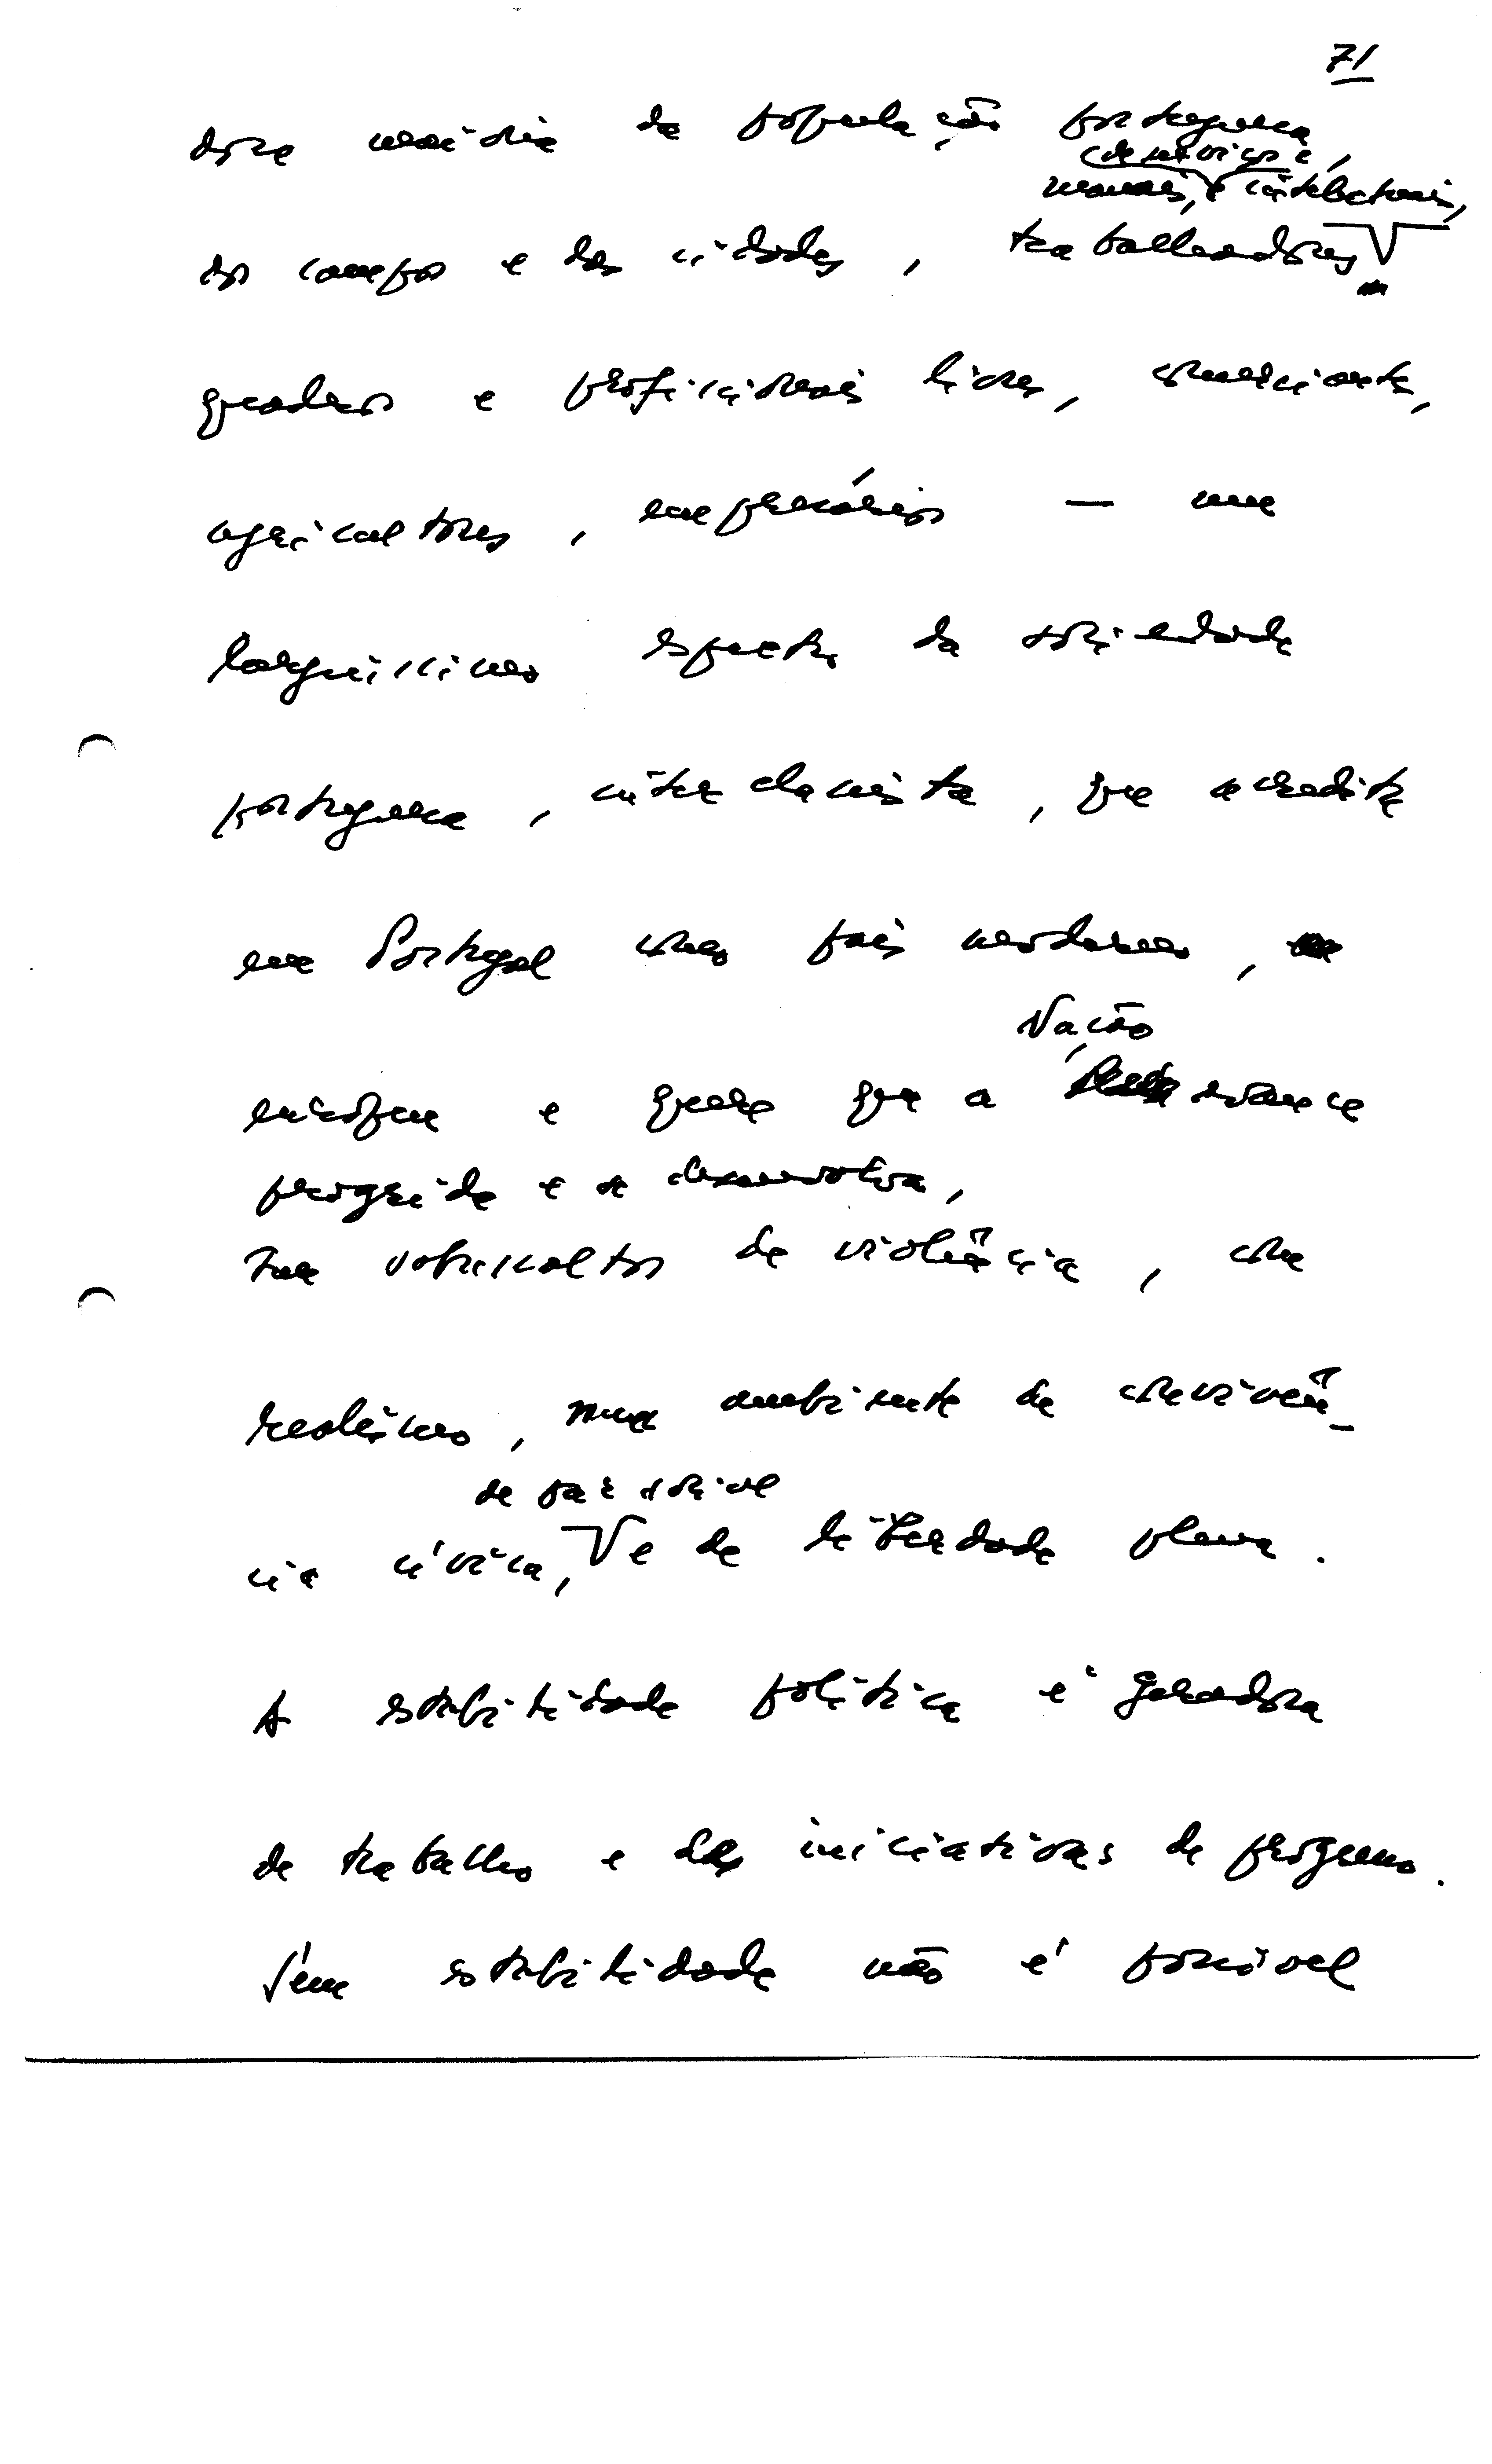 71
dora maioria da população portuguesa,
de serviços e
manuais, e intelectuais,
dos campos e das cidades, trabalhadores
quadros e profissionais livres, comerciantes,
agricultores, empresários — um
larguíssimo espectro da sociedade
portuguesa, interclassista, que acredita
em Portugal como país moderno,
Nação
europeu e quer que a avance
progrida e se desenvolva,
sem sobressaltos de violência, com
realismo, num ambiente de convivên-
de paz social
cia cívica, e de liberdade plena.
A estabilidade política é geradora
de trabalho e das iniciativas de progresso.
Sem estabilidade não é possível